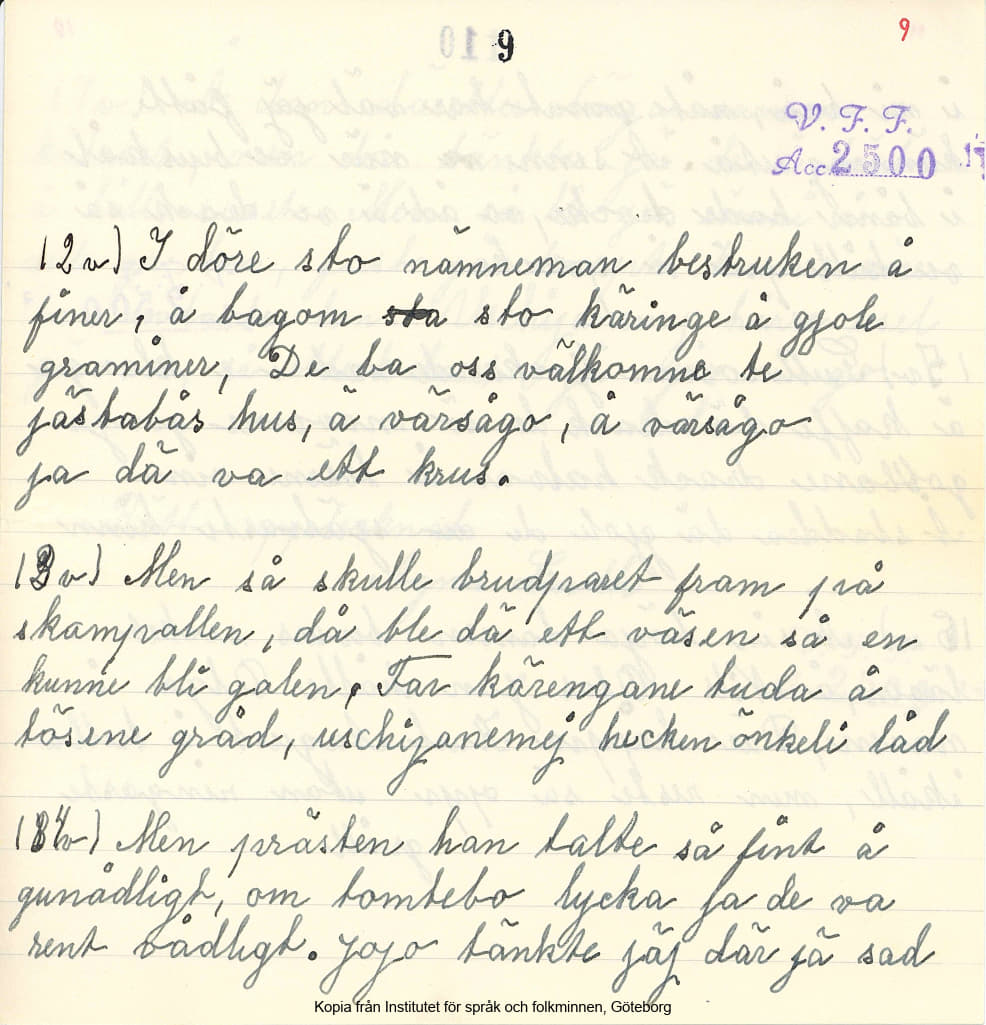 9 9
V. F. F.
Acc. 2500
12 v) I döre sto nämneman bestruken å
finer, å bagom sta sto käringe å gjole
graminer, De ba oss välkomne te
jästabås hus, å värsågo, å värsågo
ja dä va ett krus.
13 v) Men så skulle brudparet fram på
skampallen, då ble dä ett väsen så en
kunne bli galen, Far kärengane tuda å
tösene gråd, uschijanemej hecken önkeli låd
14 v) Men prästen han talte så fint å
gunådligt, om tomtebo lycka ja de va
rent vådligt. Jojo tänkte jäj där jä sad
Kopia från Institutet för språk och folkminnen, Göteborg